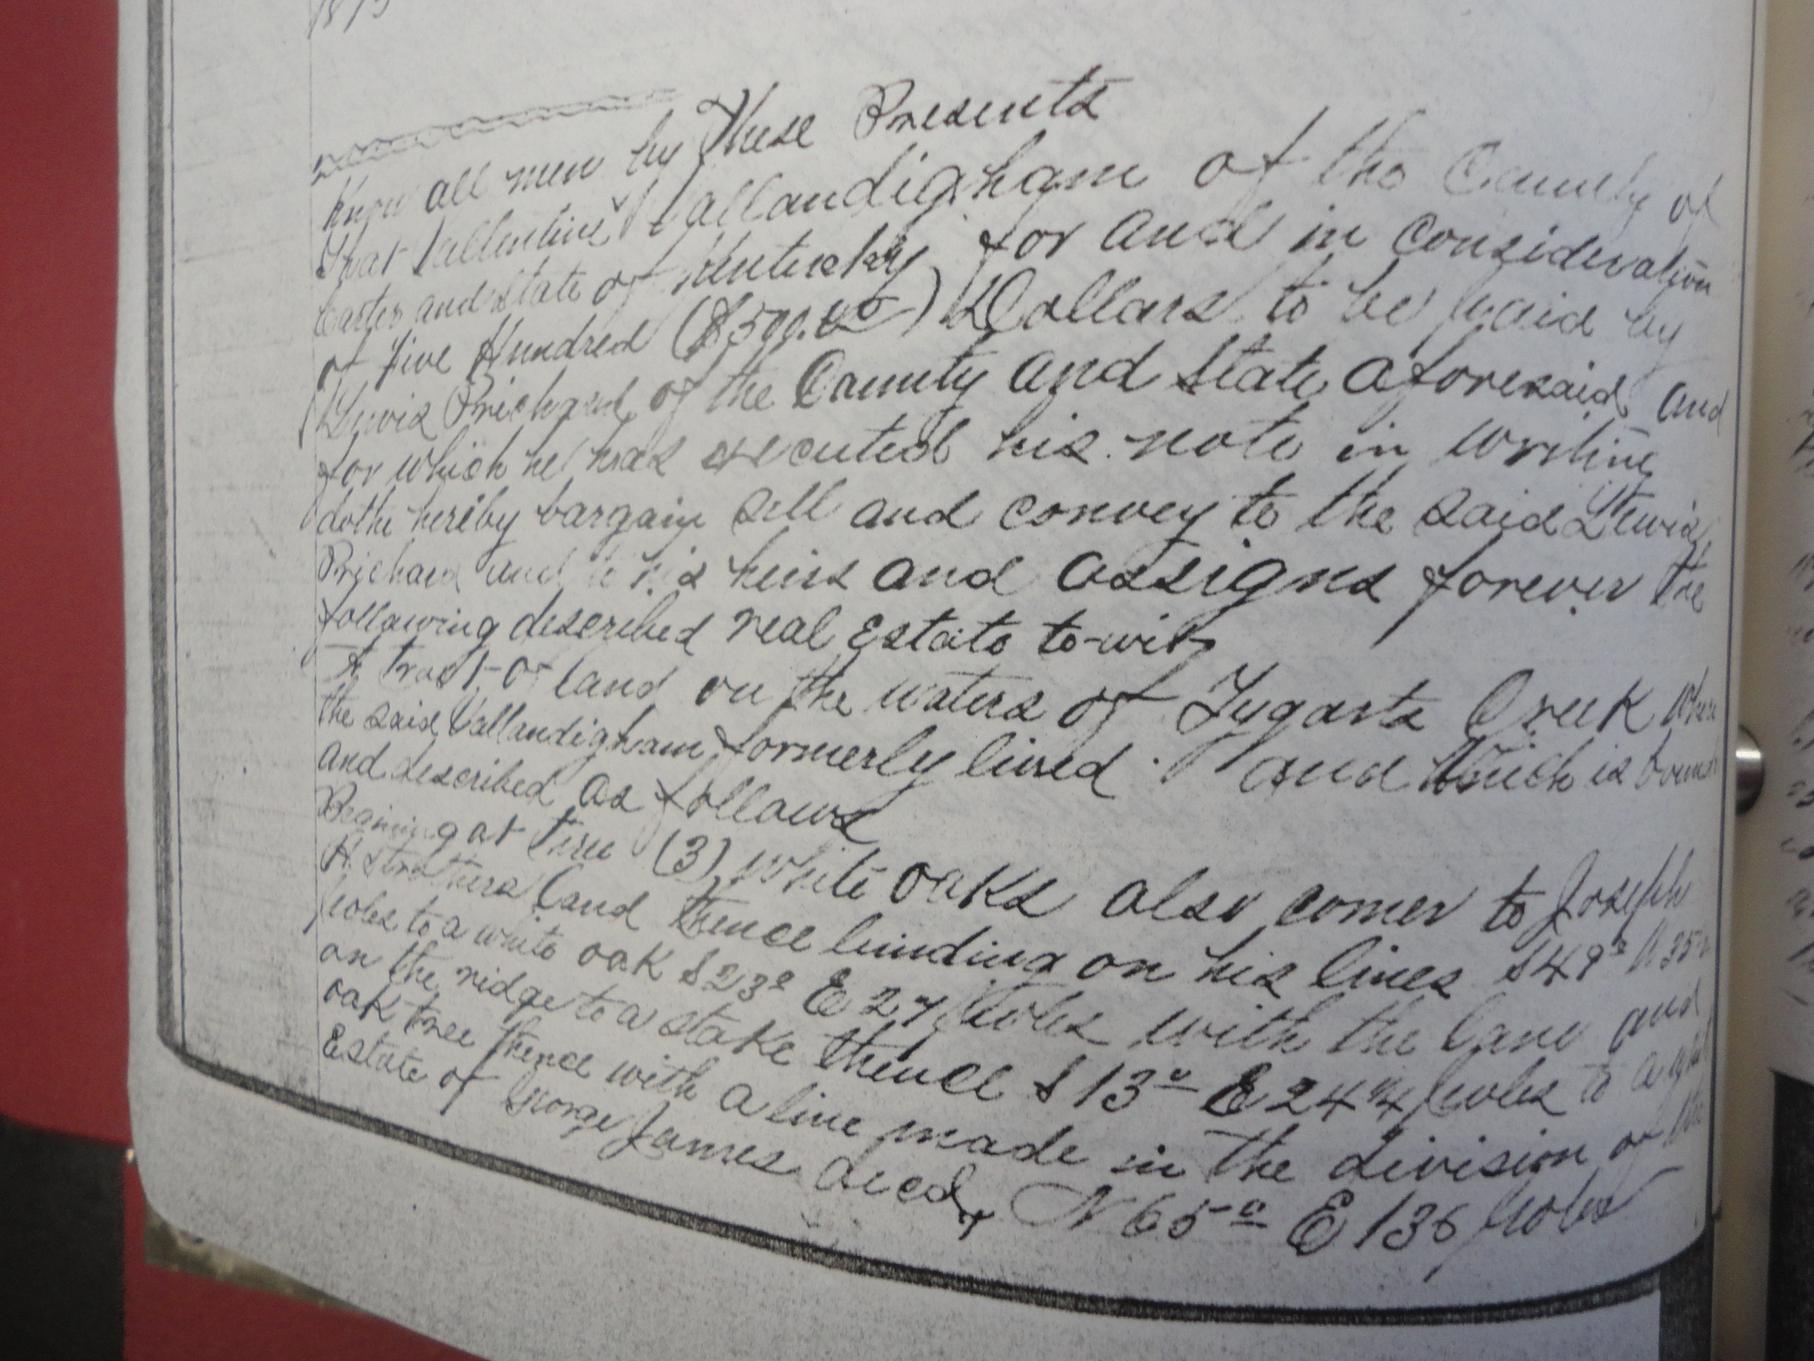 1875
Know all men by These Presents
that Vallentine Vallandigham of the County of
Carter and State of Kentucky for and in consideration
of five Hundred ($500.00) Dollars to be paid by
Lewis Prichard of the County and State aforesaid and
for which he has executed his note in writing
dothe hereby bargain sell and convey to the said Lewis
Prichard and to his heirs and assigns forever the
following described real Estate to-wit
A tract of land on the waters of Tygarts Creek where
the said Vallandigham formerly lived. and which is bound
and described as follows
Beginning at three (3) white oaks also corner to Joseph
A Strothers land thence binding on his lines S 49° W 35
poles to a white oak S 23° E 27 poles with the land and
on the ridge to a stake thence S 13° E 24 poles to a
oak tree thence with a line made in the division of the
Estate of George James decd, N 65° E 136 poles